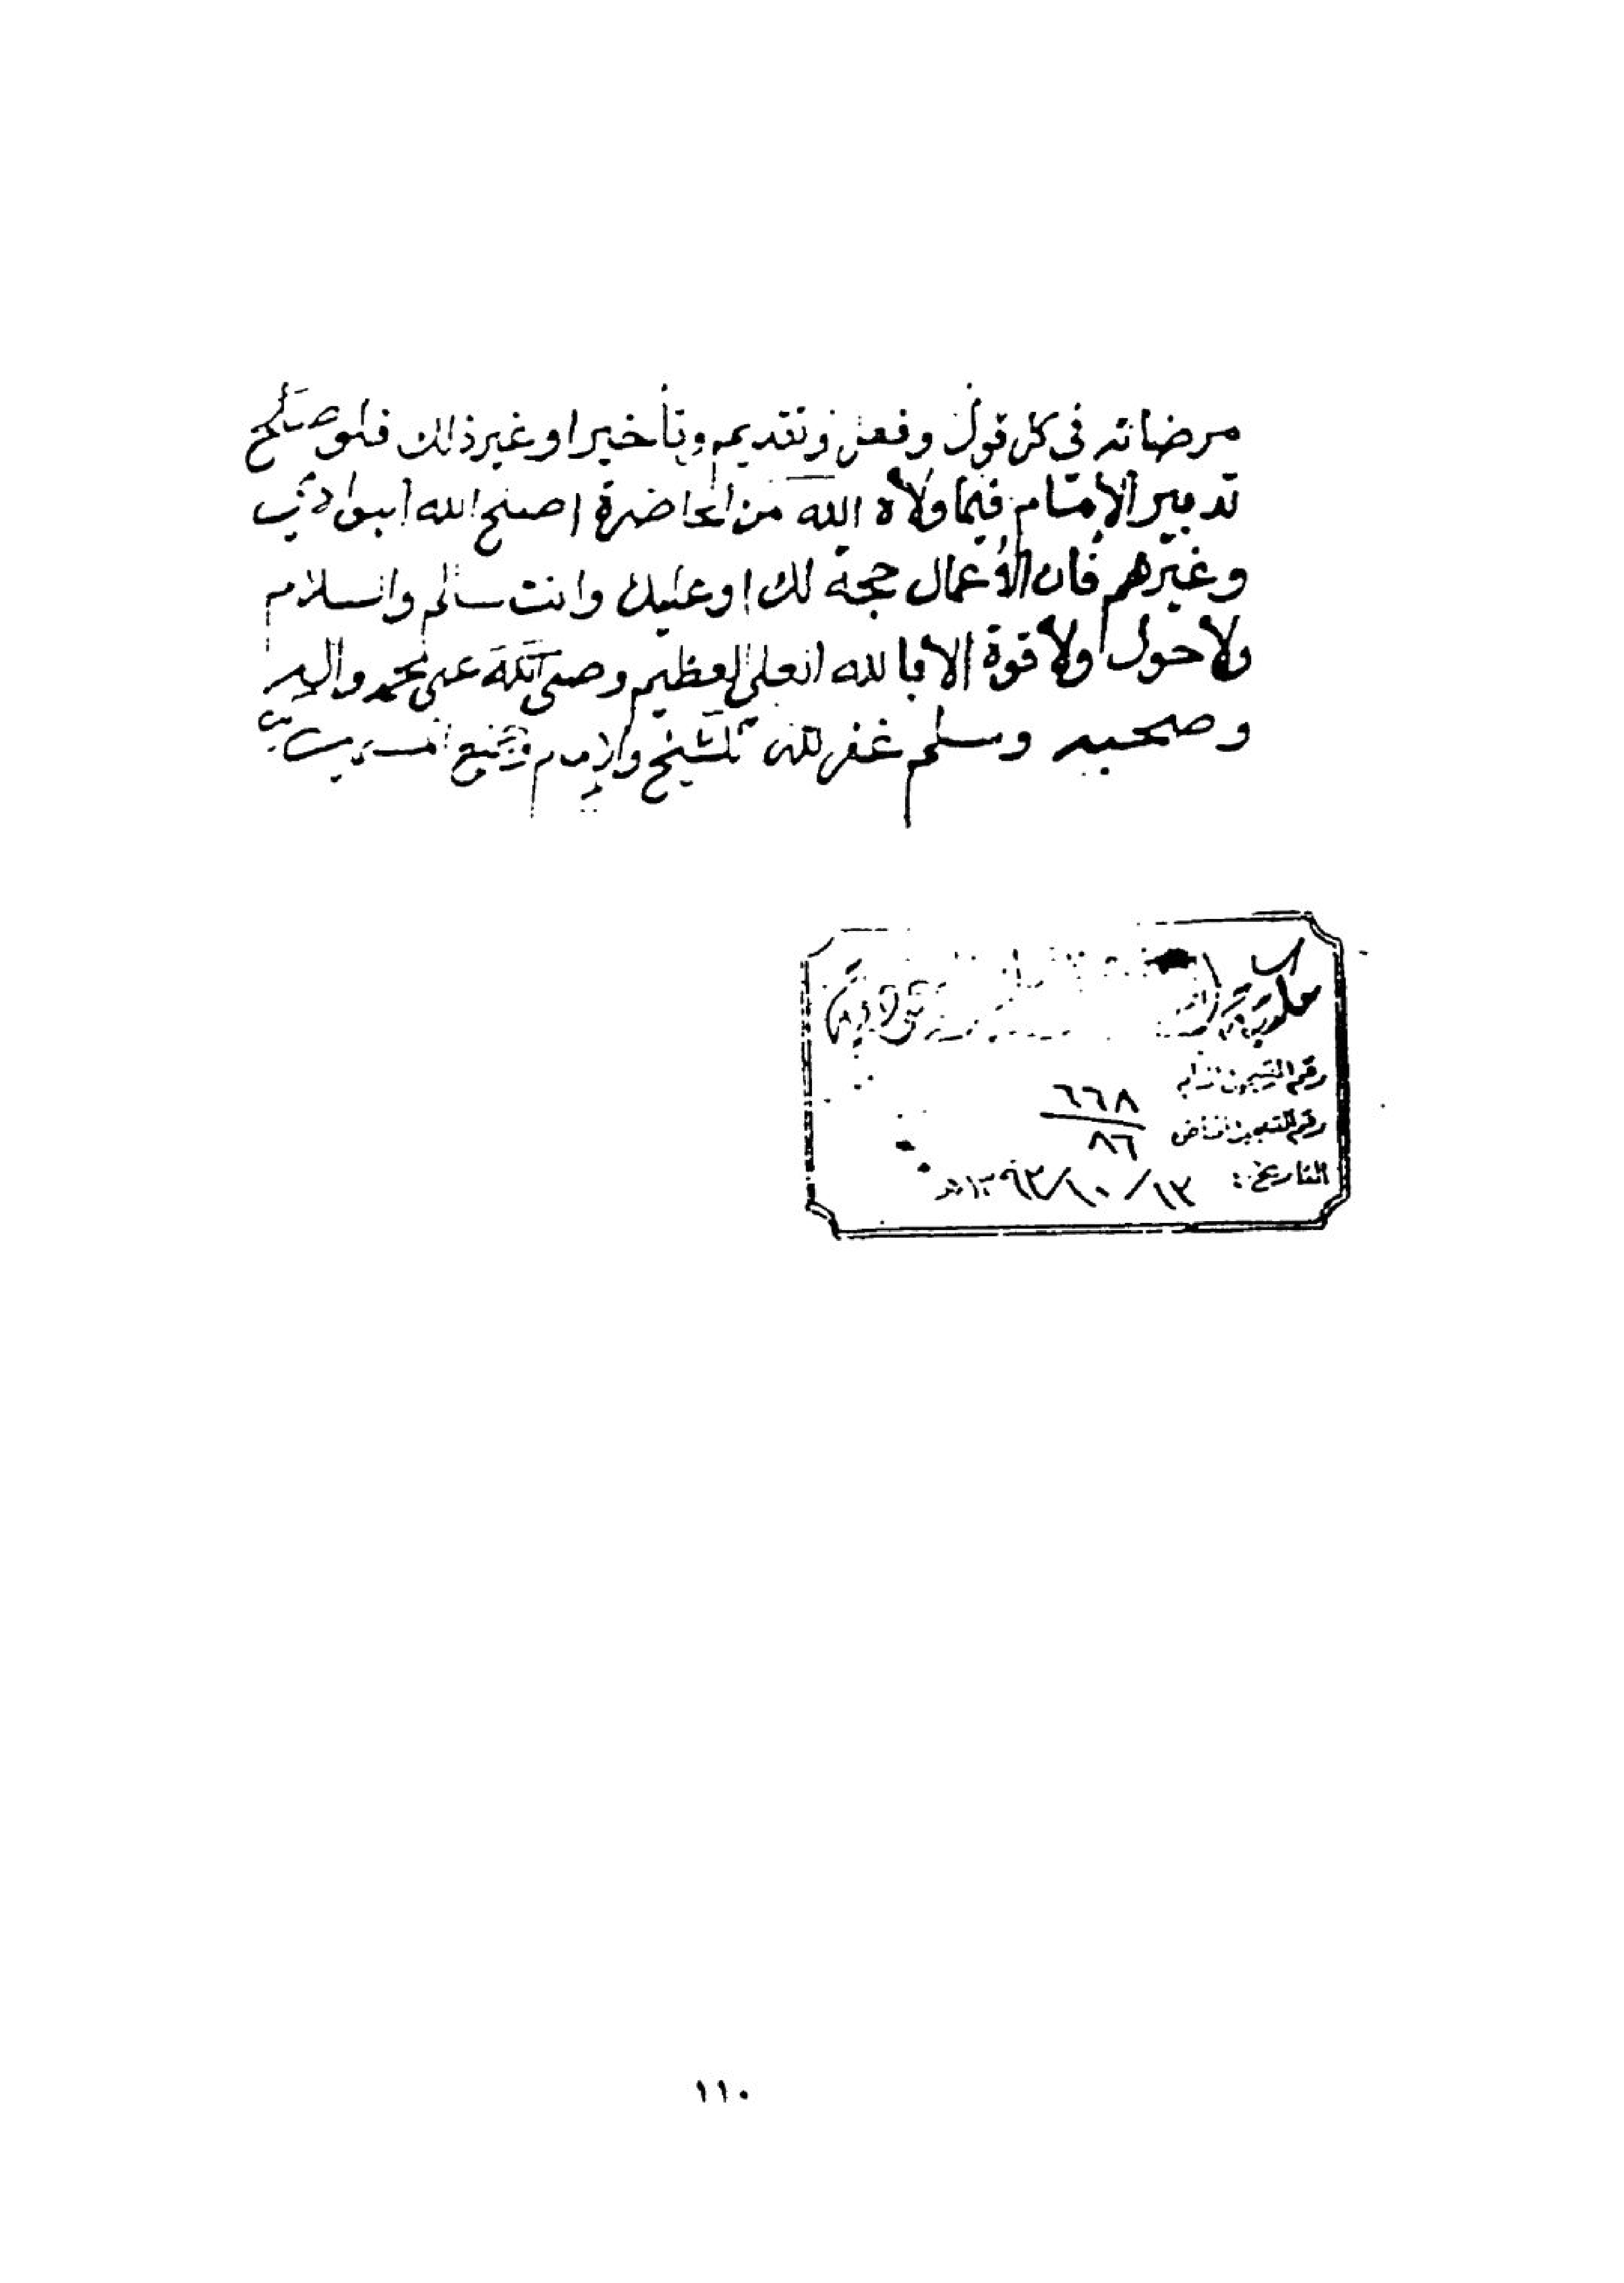 مرضاته في كل قول وفعل وتقديم وتأخير او غير ذلك فلو صلح
تدبير الإمام فيما ولاه الله من الحاضرة اصلح الله البوادي
وغيرهم فان الأعمال حجة لك او عليك وانت سالم والسلام
ولا حول ولا قوة الا بالله العلي العظيم وصلى الله على محمد واله
وصحبه وسلم غفر الله للشيخ والإمام وجميع المسلمين
رقم التسجيل العام
٦٦٨
رقم التسجيل الخاص
٨٦
التاريخ: ١٣/١٠/١٣٩٣هـ
١١٠